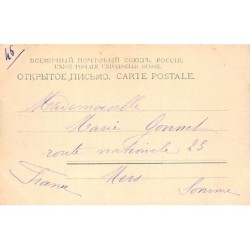 45
ВСЕМІРНЫЙ ПОЧТОВЫЙ СОЮЗЪ. РОССІЯ.
UNION POSTALE UNIVERSELLE. RUSSIE.
ОТКРЫТОЕ ПИСЬМО. CARTE POSTALE.
Mademoiselle
Marie Gonnet
route nationale 25
Mers
France Somme